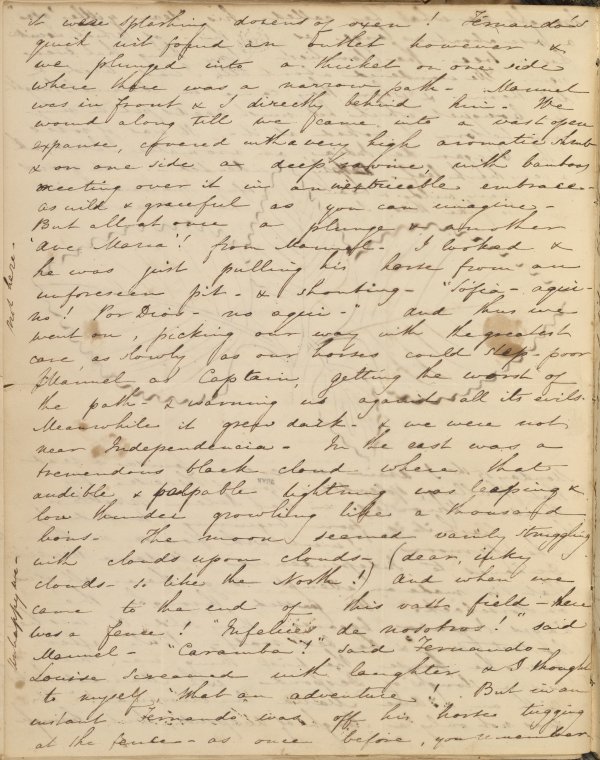 it were splashing dozens of oxen! Fernando's
quick wit found an outlet however &
we plunged into a thicket on one side
where there was a narrow path - Manuel
was in front & I directly behind him - We
wound along till we came into a vast open
expanse, covered with a very high aromatic shrub
& on one side a deep ravine, with bamboos
meeting over it in an inextricable embrace -
as wild & graceful as you can imagine -
But all at once a plunge & another
'Ave Maria'! from Manuel - I looked &
he was just pulling his horse from an
unforeseen pit - & shouting - "Sofia - aqui -
no! Por Dios - no aqui -" and thus we
went on, picking our way with the greatest
care, as slowly as our horses could step - poor
Manuel as Captain, getting the worst of
the path - & warning us against all its evils -
Meanwhile it grew dark - & we were not
near Independencia - In the east was a
tremendous black cloud where that
audible & palpable lightning was leaping &
low thunder growling like a thousand
lions - The moon seemed vainly struggling
with clouds upon clouds - (dear, inky
clouds - so like the North!) And when we
came to the end of this vast field - there
was a fence! "Infelices de nosotros!" said
Manuel - "Caramba"! said Fernando -
Louise screamed with laughter & I thought
to myself, "What an adventure"! But in an
instant Fernando was off his horse tugging
at the fence - as once before, you remember
not here -
Unhappy we -